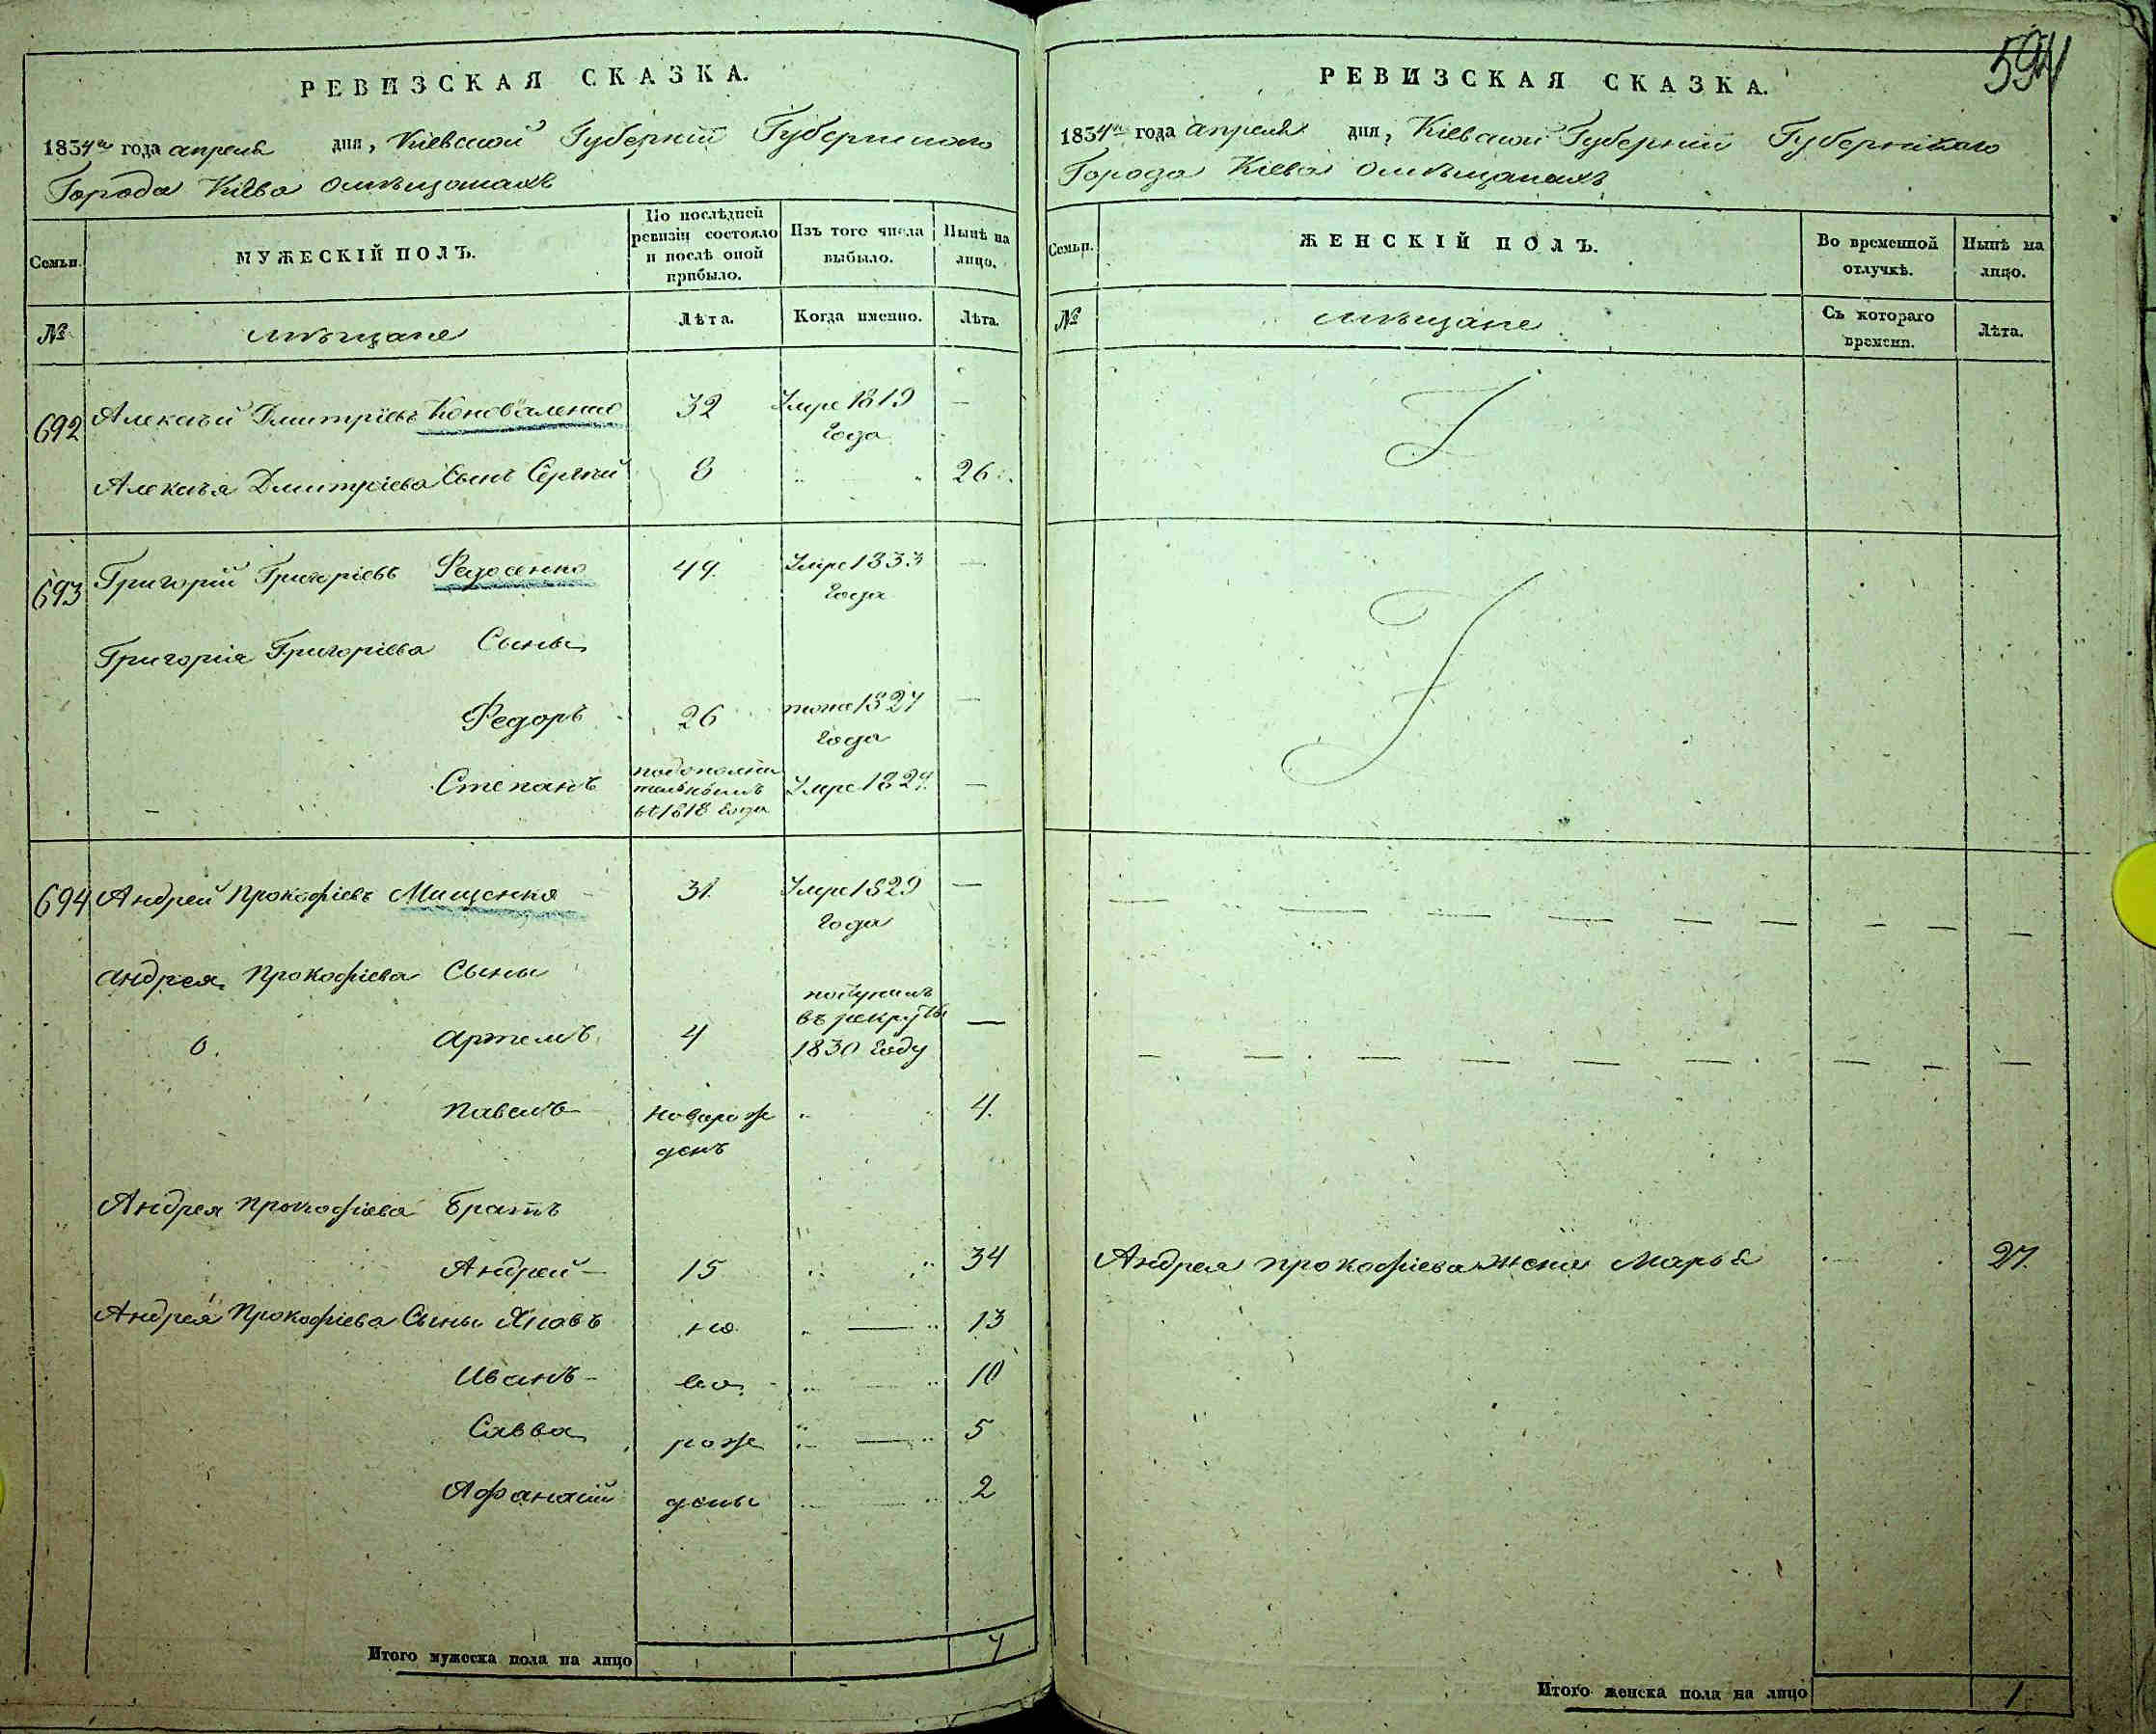 РЕВИЗСКАЯ СКАЗКА.
1834го года апреля дня, Кіевской Губерніи Губернскаго
Города Кіева омѣщанахъ
Семьи.
МУЖЕСКІЙ ПОЛЪ.
По послѣдней ревизіи состояло и послѣ оной прибыло.
Изъ того числа выбыло.
Нынѣ на лицо.
№
мѣщане
Лѣта.
Когда именно.
Лѣта.
692 Алексѣй Дмитріевъ Коноваленко 32 Умре 1819 —
года
Алексѣя Дмитріева Сынъ Сергѣй 8 26
693 Григорій Григоріевъ Федосенко 49 Умре 1833 —
года
Григорія Григоріева Сыны
Федоръ 26 1827 —
года
Степанъ подополни Умре 182 —
тельнымъ
1818 года
694 Андрей Прокофіевъ Мищенко 31 Умре 1829 —
года
Андрея Прокофіева Сыны
въ рекруты
о. Артемъ 4 1830 году —
Павелъ новорож 4
денъ
Андрея Прокофіева Братъ
Андрей 15 34
Андрея Прокофіева Сыны Яковъ но 13
Иванъ во 10
Савва рож 5
Афанасій дены 2
Итого мужеска пола на лицо 7
594
РЕВИЗСКАЯ СКАЗКА.
1834го года апреля дня, Кіевской Губерніи Губернскаго
Города Кіева омѣщанахъ
Семьи.
ЖЕНСКІЙ ПОЛЪ.
Во временной отлучкѣ.
Нынѣ на лицо.
№
мѣщане
Съ котораго времени.
Лѣта.
Андрея Прокофіева жена Марья 27
Итого женска пола на лицо 1